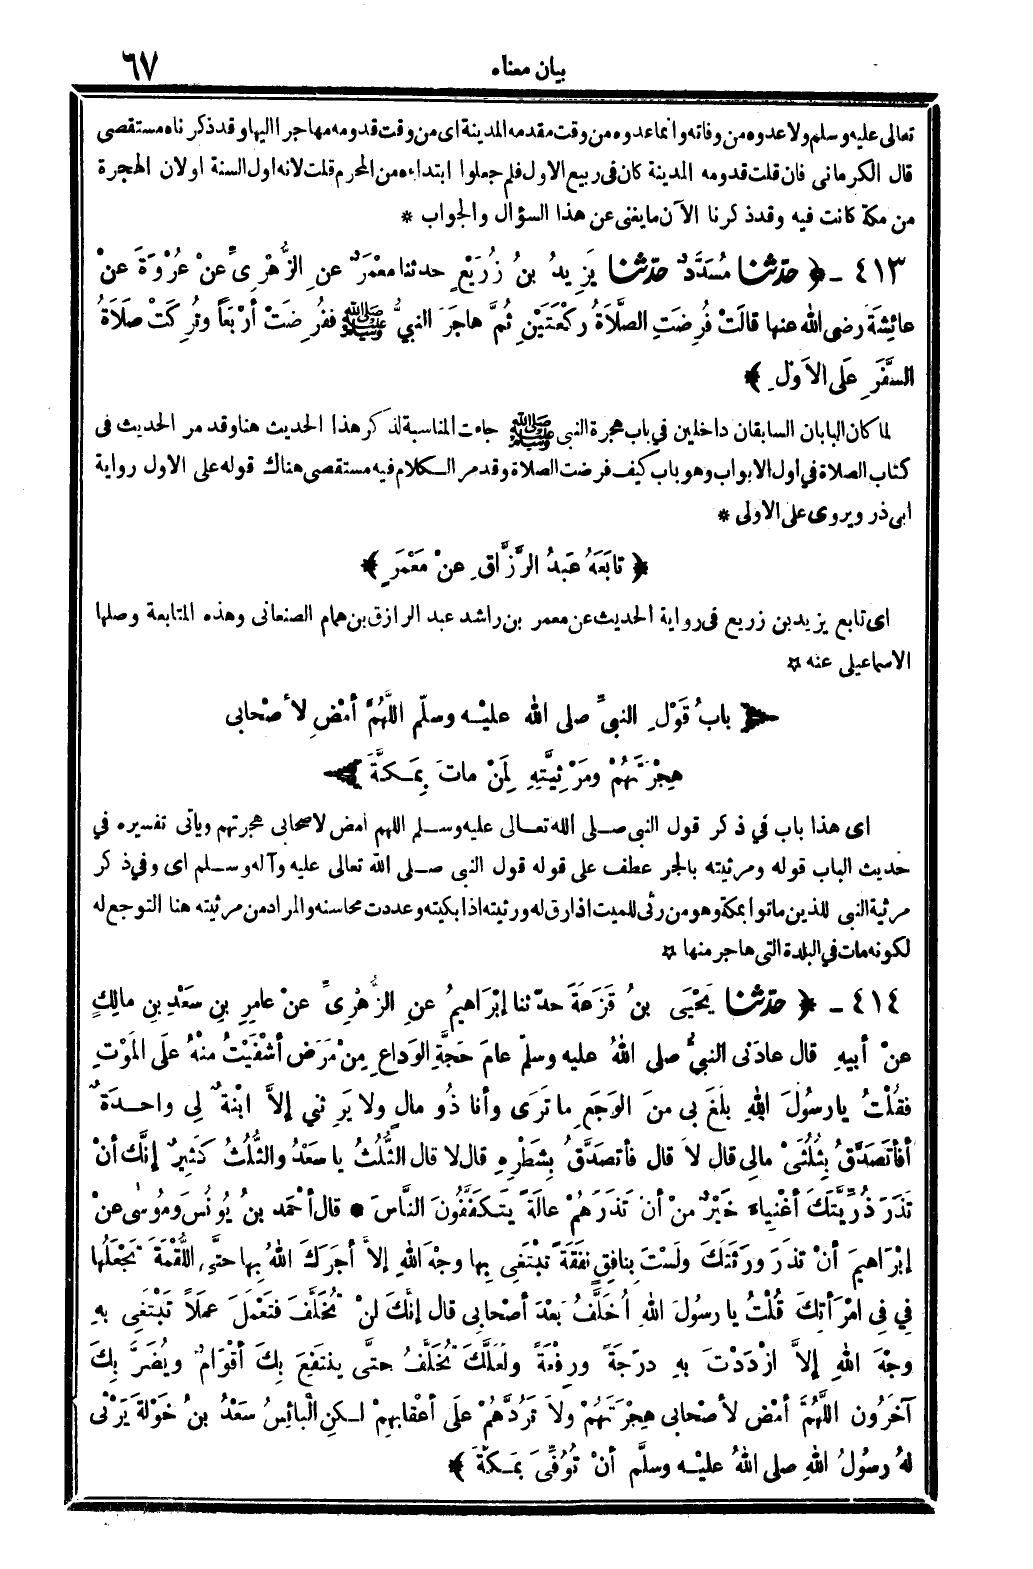 بيان معناه
٦٧
تعالى عليه وسلم ولاعدوه من وفاته وانما عدوه من وقت مقدمه المدينة اى من وقت قدومه مهاجرا اليها وقد ذكرناه مستقصى
قال الكرمانى فان قلت قدومه المدينة كان فى ربيع الاول فلم جعلوا ابتداءه من المحرم قلت لانه اول السنة اولان الهجرة
من مكة كانت فيه وقد ذكرنا الآن ما يغنى عن هذا السؤال والجواب *
٤١٣ - ﴿ حدّثنا مُسَدَّدٌ حدّثنا يَزِيدُ بنُ زُرَيْعٍ حدثنا مَعْمَرٌ عنِ الزُّهْرِىِّ عنْ عُرْوَةَ عنْ
عائِشَةَ رضى الله عنها قالَتْ فُرِضَتِ الصَّلاَةُ رَكْعَتَيْنِ ثُمَّ هاجَرَ النبىُّ ﷺ ففُرِضَتْ أرْبَعاً وتُرِكَتْ صَلاَةُ
السَّفَرِ عَلَى الاَوَّلِ ﴾
لما كان البابان السابقان داخلين في باب هجرة النبى ﷺ جاءت المناسبة لذكر هذا الحديث هنا وقد مر الحديث فى
كتاب الصلاة في اول الابواب وهو باب كيف فرضت الصلاة وقد مر الكلام فيه مستقصى هناك قوله على الاول رواية
ابى ذر ويروى على الاولى *
﴿ تابَعَهُ عَبدُ الرَّزَّاقِ عنْ مَعْمَرٍ ﴾
اى تابع يزيد بن زريع فى رواية الحديث عن معمر بن راشد عبد الرازق بن همام الصنعانى وهذه المتابعة وصلها
الاسماعيلى عنه *
﴿ بابُ قَوْلِ النبىِّ صلى الله عليْه وسلّم اللَّهُمَّ أمْضِ لأصْحابى
هِجْرَتَهُمْ ومَرْثِيَّتِهِ لِمَنْ ماتَ بِمَكَّةَ ﴾
اى هذا باب في ذكر قول النبى صلى الله تعالى عليه وسلم اللهم امض لاصحابى هجرتهم وياتى تفسيره في
حديث الباب قوله ومرثيته بالجر عطف على قوله قول النبى صلى الله تعالى عليه وآله وسلم اى وفي ذكر
مرثية النبى للذين ماتوا بمكة وهو من رثى للميت اذا رق له ورثيته اذا بكيته وعددت محاسنه والمراد من مرثيته هنا التوجع له
لكونه مات في البلدة التى هاجر منها *
٤١٤ - ﴿ حدّثنا يَحْيَى بنُ قَزَعَةَ حدّثنا إبْرَاهِيمُ عنِ الزُّهْرِىِّ عنْ عامِرِ بنِ سَعْدِ بنِ مالِكٍ
عنْ أبيهِ قال عادَنى النبىُّ صلى اللهُ عليه وسلّم عامَ حَجَّةِ الوَداعِ مِنْ مَرَضٍ أشْفَيْتُ منْهُ علَى المَوْتِ
فقُلْتُ يا رسُولَ اللهِ بلَغَ بى منَ الوَجَعِ ما تَرَى وأنا ذُو مالٍ ولا يَرِثني إلاَّ ابْنةٌ لِى واحِدَةٌ
أفأتَصَدَّقُ بِثُلُثَىْ مالِى قال لاَ قال فأتصَدَّقُ بِشَطْرِهِ قال لا قال الثُّلُثُ يا سَعْدُ والثُّلُثُ كَثِيرٌ إنَّكَ أنْ
تَذَرَ ذُرِّيَّتَكَ أغْنِياءَ خَيْرٌ منْ أنْ تَذَرَهُمْ عالَةً يَتَكَفَّفُونَ النَّاسَ * قال أحْمَدُ بنُ يُونُسَ ومُوسَى عنْ
إبْرَاهِيمَ أنْ تَذَرَ ورَثَتَكَ ولَسْتَ بِنافِقٍ نفَقَةً تبْتَغى بِها وجْهَ اللهِ إلاَّ أجَرَكَ اللهُ بِها حتَّى اللُّقْمَةَ تَجْعَلُها
فِي فِى امْرَأتِكَ قُلْتُ يا رسُولَ اللهِ أُخَلَّفُ بَعْدَ أصْحابى قال إنَّكَ لنْ تُخَلَّفَ فتَعْمَلَ عمَلاً تَبْتَغِى بِهِ
وجْهَ اللهِ إلاَّ ازْدَدْتَ بهِ درَجَةً ورِفْعَةً ولَعَلَّكَ تُخَلَّفُ حتَّى يَنْتَفِعَ بِكَ أقْوَامٌ ويُضَرَّ بِكَ
آخَرُونَ اللَّهُمَّ أمْضِ لأصْحابى هِجْرَتَهُمْ ولاَ تَرُدَّهُمْ علَى أعْقابِهِمْ لكنِ الْبائِسُ سَعْدُ بنُ خَوْلَةَ يَرْثى
لهُ رسُولُ اللهِ صلى اللهُ عليْه وسلَّم أنْ تُوُفِّىَ بمَكَّةَ ﴾